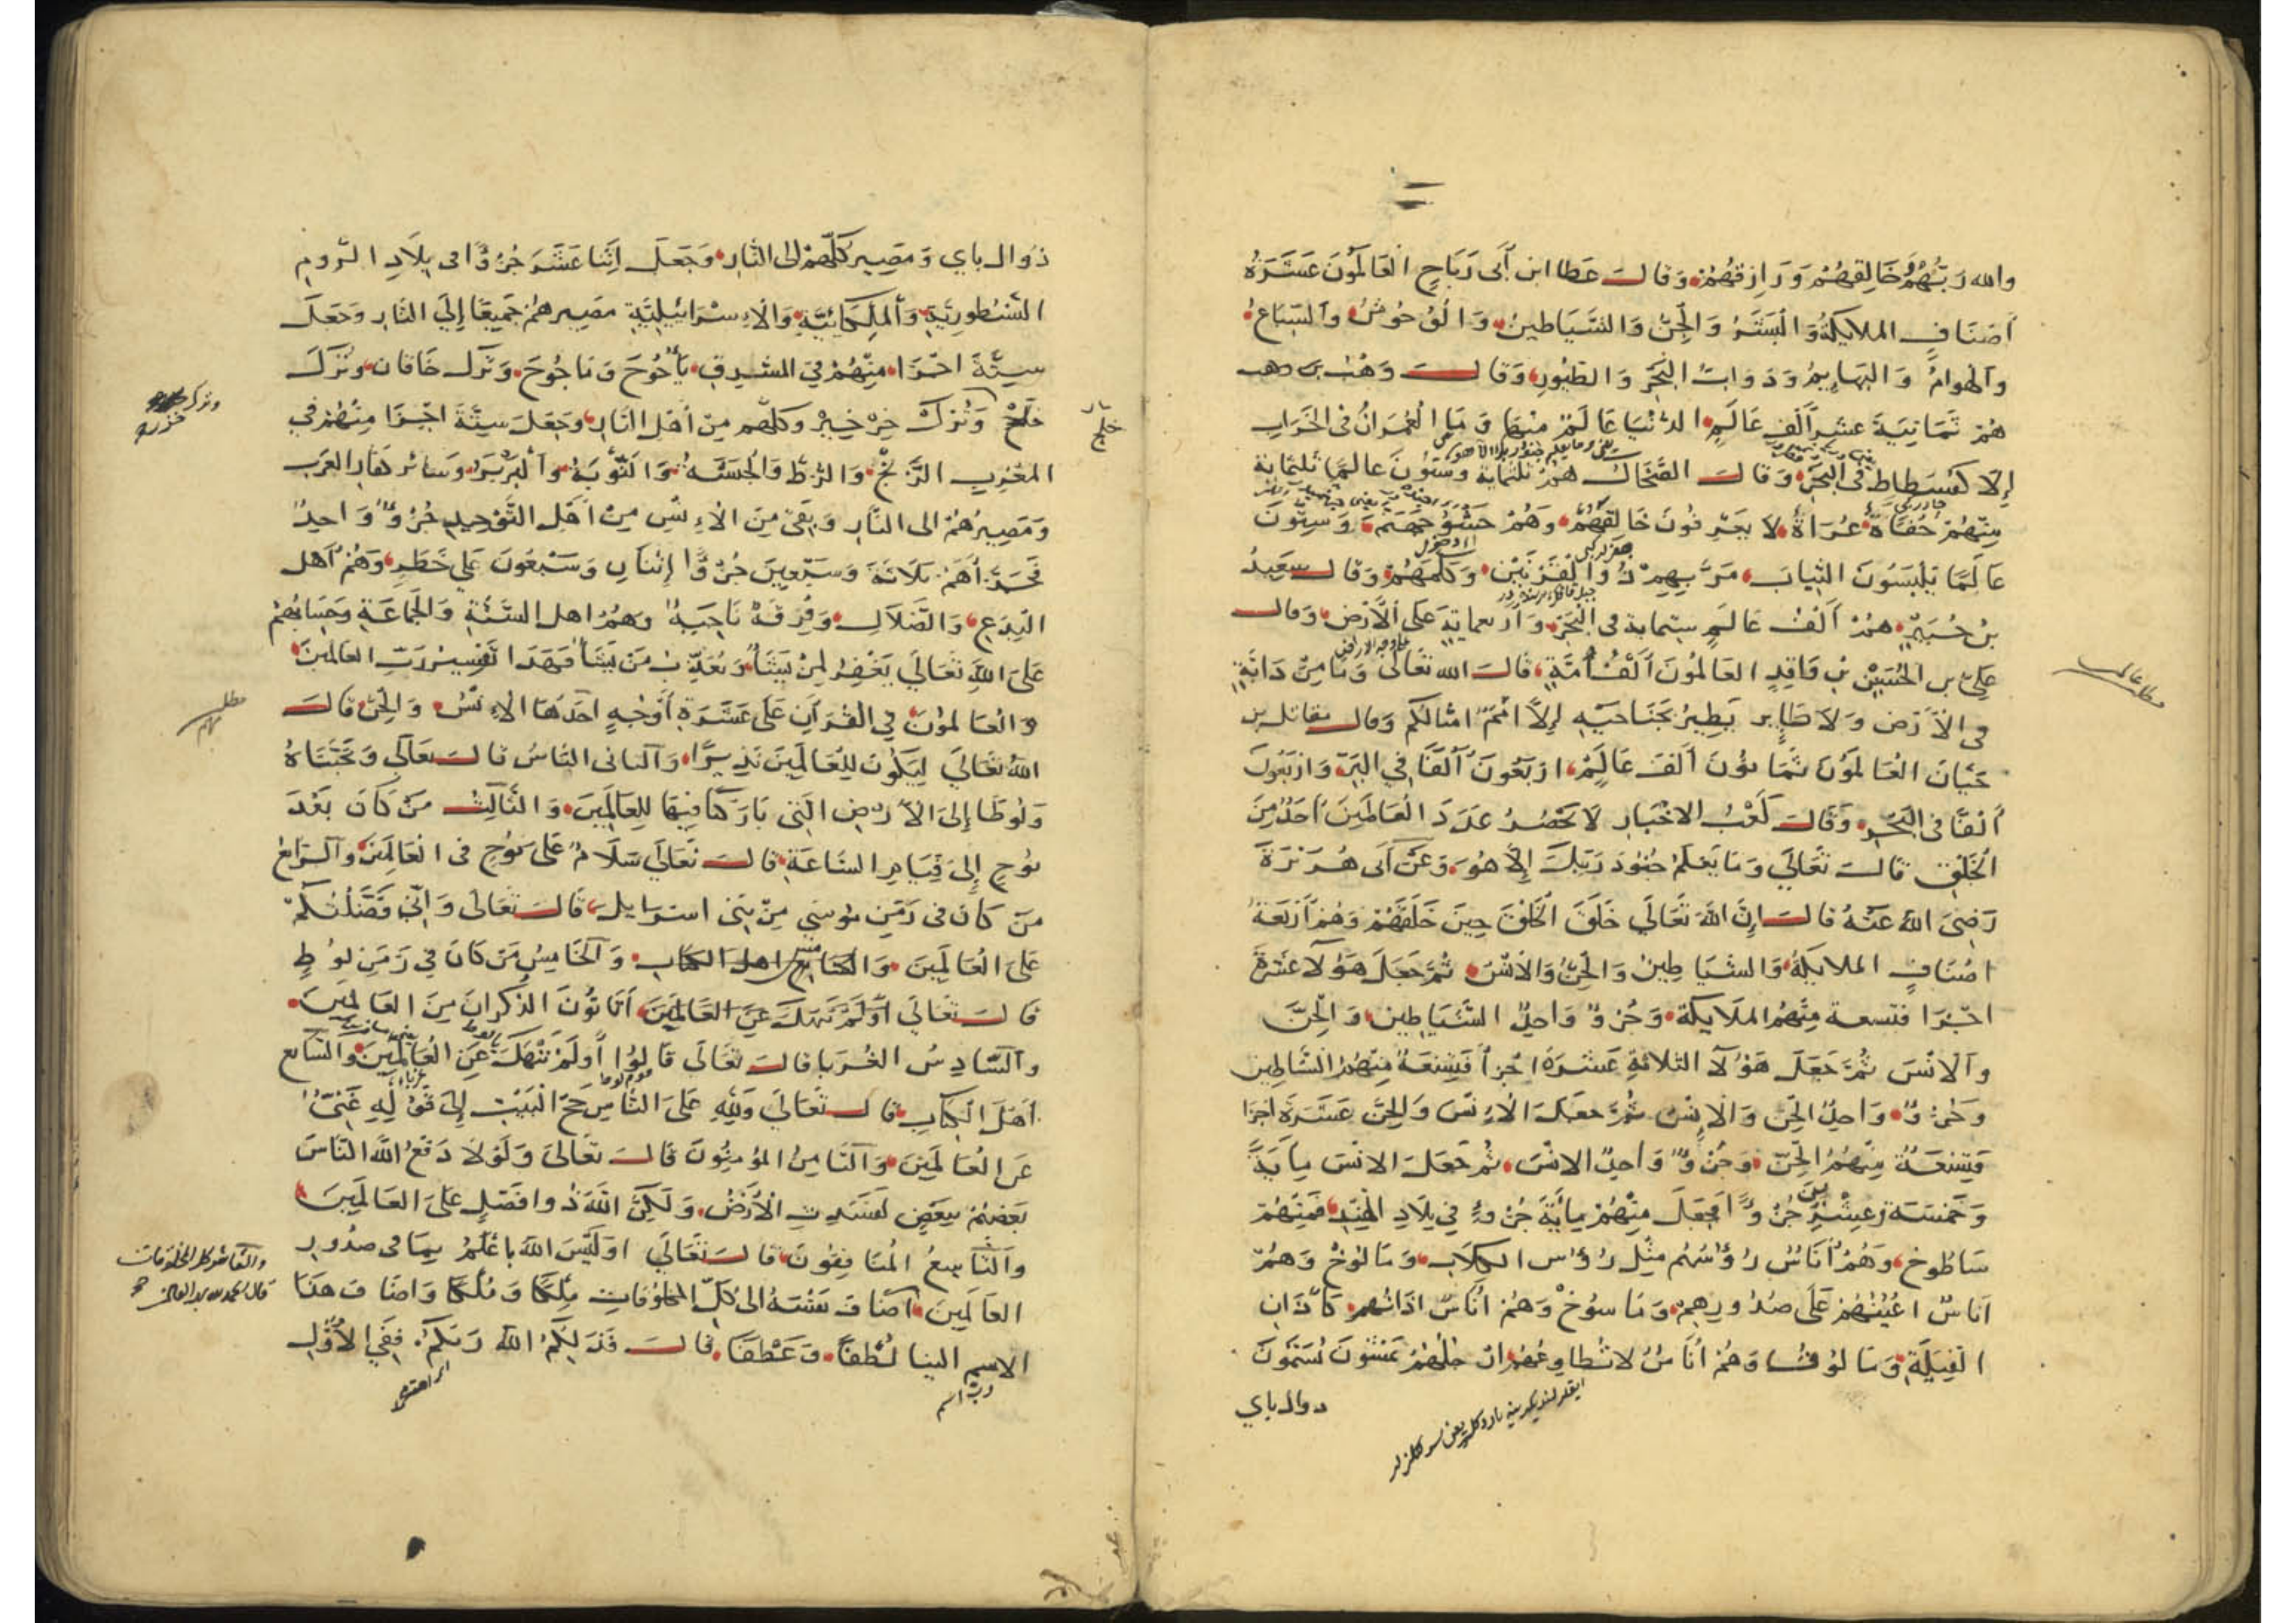 والله رَبُّهُمْ وَخَالِقهُمْ وَرَازِقهُمْ وَقالَ عَطا ابن أبى رَبَاحٍ العَالَمُونَ عَشَرَةُ
أصْنَافٍ الملايكةُ وَالبَشَرُ وَالجِنُّ وَالشَّيَاطينُ وَالوُحُوشُ وَالسِّبَاعُ
وَالهوامُّ وَالبَهَايمُ وَدَوَابُّ البَحْرِ وَالطُّيُورِ وَقالَ وَهْبُ بن وهب
هُمْ ثَمَانِيَةَ عَشَرَ أَلْفِ عَالَمٍ الدُّنْيَا عَالَمٌ مِنْهَا وَمَا العُمْرَانُ فى الخَرَابِ
إلّا كَفُسْطَاطٍ فى البَحْرِ وَقالَ الضَّحَّاكُ هُمْ ثَلثُمَايَة وَسِتُّونَ عَالَمًا ثَلثُمَاية
مِنْهُمْ حُفَاةٌ عُرَاةٌ لا يَعْرِفُونَ خَالِقَهُمْ وَهُمْ حَشْوُ جَهَنَّمَ وَسِتُّونَ
عَالَمًا يَلْبَسُونَ الثِّيابَ مَرَّ بِهِمْ ذُو القَرْنَيْنِ وَكَلَّمَهُمْ وَقالَ سعيدُ
بنُ جُبَيْرٍ هُمْ أَلْفُ عَالَمٍ ستماية فى البَحْرِ وَأربعمايةٍ عَلَى الأَرْضِ وَقالَ
عَلِىُّ بن الحُسَيْنِ بْنِ وَاقِدٍ العَالَمُونَ أَلْفُ أُمَّةٍ قَالَ الله تعَالَى وَمَا مِنْ دَابَّةٍ
فى الأَرْضِ وَلَا طَايرٍ يَطِيرُ بجَنَاحَيْهِ إِلَّا أُمَمٌ أمْثَالُكُمْ وَقالَ مقاتل بن
حَيَّانَ العَالَمُونَ ثَمَانُونَ أَلْفَ عَالَمٍ أرْبَعُونَ أَلْفًا فِي البَرِّ وَأرْبَعُونَ
أَلْفًا فى البَحْرِ وَقَالَ كَعْبُ الاخْبَارِ لَا يَحْصُرُ عَدَدَ العَالَمِينَ أحَدٌ مِنَ
الخَلْقِ قَالَ تَعَالَى وَمَا يَعْلَمُ جُنُودَ رَبِّكَ إِلَّا هُوَ وَعَنْ أَبى هُرَيْرَةَ
رَضِىَ اللهُ عَنْهُ قالَ إِنَّ اللهَ تَعَالَى خَلَقَ الخَلْقَ حِينَ خَلَقَهُمْ وَهُمْ أَرْبَعَةُ
اصْنَافٍ الملايكَةُ وَالشَّيَاطِينُ وَالجِنُّ وَالانْسُ ثُمَّ جَعَلَ هَؤلآ عَشَرَةَ
اجْزَا فتسعة مِنْهُمُ المَلَايكَة وَجُزْوٌ وَاحِدٌ الشَّيَاطِينُ وَالجِنُّ
وَالانْسُ ثُمَّ جَعَلَ هَؤُلآ الثلاثَةِ عَشَرَةَ اجْزآ فَتِسْعَةٌ مِنْهُمُ الشَّيَاطِين
وَجُزْوٌ وَاحِدٌ الجِنُّ وَالاِنْسُ ثُمَّ جعَلَ الاِنْسَ وَالجِنَّ عَشَرَةَ اجزا
فَتِسْعَةٌ مِنْهُمُ الجِنُّ وَجُزْوٌ وَاحِدٌ الانْسُ ثُمَّ جَعَلَ الانْسَ مِايَةً
وَخَمْسَةً وَعِشْرِينَ جُزْوًا فجَعَلَ مِنْهُمْ مِايَةَ جُزْوٍ فِي بِلَادِ الهِنْدِ فَمِنْهُمْ
سَاطُوخ وَهُمْ أُنَاسٌ رُؤُسُهُمْ مِثْلُ رُؤُسِ الكِلَابِ وَمَالُوخْ وَهُمْ
انَاسٌ اعْيُنُهُمْ عَلَى صُدُورِهِمْ وَمَاسُوخْ وَهُمْ انَاسٌ اذَانُهم كَآذَانِ
الفِيَلَةِ وَمَالُوف وَهُمْ أُنَاسٌ لا تُطَاوِعُهُمْ ارْجُلُهُمْ يَمْشُونَ يُسَمَّوْنَ
دوال باي
ذُوال باي وَمَصِيرُ كُلِّهِمْ إلى النَّارِ وَجَعَلَ اِثْنَا عَشَرَ جُزْوًا فى بِلَادِ الرُّومِ
النَّسْطُورِيَّة وَالمَلِكَائِيَّة وَالاِسْرَائِيلِيَّةِ مَصِيرهُمْ جَمِيعًا إِلَى النَّارِ وَجَعَلَ
سِتَّةَ اجْزَا مِنْهُمْ فِي المشْرِقِ يَأْجُوجَ وَمَاجُوجَ وَتُرْكَ خَاقان وَتُرْكَ
خَلَجْ وَتُرْكَ خِزْ خِيزْ وَكلّهم مِنْ أَهْلِ النَّارِ وَجَعَلَ سِتَّةَ اجْزَا مِنْهُمْ فِي
المغْرِبِ الزَّنْجُ وَالزُّطُّ وَالحَبَشَةُ وَالنُّوبَةُ وَالبَرْبَرُ وَسَائر كفّارِ العَرَبِ
وَمَصِيرُهُمْ الى النَّارِ وَبَقىَ مِنَ الاِنْسِ مِنْ اَهْلِ التَّوْحِيدِ جُزْوٌ وَاحِدٌ
فَجَزَّأَهُمْ ثَلَاثَةً وَسَبْعِينَ جُزْوًا اِثْنَانِ وَسَبْعُونَ عَلَى خَطَرٍ وَهُمْ أَهْل
البِدَعِ وَالضَّلَالِ وَفِرْقَةٌ نَاجِيَةٌ وَهُمْ اهل السُّنَّةِ وَالجَمَاعَةِ وَحِسَابُهُمْ
عَلَى اللهِ تَعَالَى يَغْفِرُ لِمَنْ يَشَأُ وَيُعَذِّبُ مَنْ يَشَأُ فَهَذَا تَفْسِيرُ رَبِّ العالمينَ
وَالعَالمونَ فِي القُرْآنِ عَلَى عَشَرَةِ أَوْجُهٍ أحَدُهَا الاِنْسُ وَالجِنُّ قَالَ
اللهُ تعَالَى لِيَكُونَ لِلعَالَمِينَ نَذِيرًا وَالثانى النَّاسُ قالَ تَعَالَى وَنَجَّيْنَاهُ
وَلُوطًا إِلَى الأَرْضِ الَّتِى بَارَكْنَا فِيهَا لِلعَالَمِينَ وَالثَّالِثُ مَنْ كَانَ بَعْدَ
نُوحٍ إِلَى قِيَامِ السَّاعَةِ قالَ تَعَالَى سَلَامٌ عَلَى نُوحٍ فى العَالَمِينَ وَالرَّابعُ
مَن كَانَ فى زَمَنِ مُوسَى مِنْ بَنِى اسْرَايلَ قَالَ تَعَالَى وَاَنِّى فَضَّلْتُكُمْ
عَلَى العَالَمِينَ وَالخَامِسُ مَنْ كَانَ فِي زَمَنِ لُوطٍ
قَالَ تَعَالَى أَوَلَمْ نَنْهَكَ عَنِ العَالَمِينَ أَتَاتُونَ الذُّكْرَانَ مِنَ العَالَمِينَ
وَالسَّادِسُ الغُرَبا قالَ تعَالَى قَالُوا أَوَلَمْ نَنْهَكَ عَنِ العَالَمِينَ وَالسَّابع
أَهْلَ الكِتَابِ قالَ تَعَالَى وَلِلَّهِ عَلَى النَّاسِ حَجُّ البَيْتِ إِلَى قَوْلِهِ غَنِىٌّ
عَنِ العَالَمِينَ وَالثَّامِنُ المُؤْمِنُونَ قَالَ تعَالَى وَلَوْلَا دَفْعُ اللهِ النَّاسَ
بَعْضهُمْ بِبَعْضٍ لَفَسَدَتِ الأَرْضُ وَلَكِنَّ اللهَ ذُوا فَضْلٍ عَلَى العَالَمِينَ
وَالتَّاسِعُ المُنَافِقُونَ قالَ تَعَالَى اوَلَيْسَ اللهُ بِاعْلَمَ بِمَا فى صدُورِ
العَالَمِينَ أضَافَ نَفْسَهُ الى كُلِّ المخلوُقاتِ مِلْكًا وَمُلْكًا وَاضَافَ هَذَا
الاسم الينا لُطْفًا وَعَطْفًا قَالَ فَذَلِكُمُ اللهُ رَبّكُمْ فَفِي الأَوَّلِ
خلج
مطلب
والعاشر كل المخلوقات
قال الحمد لله رب العالمين